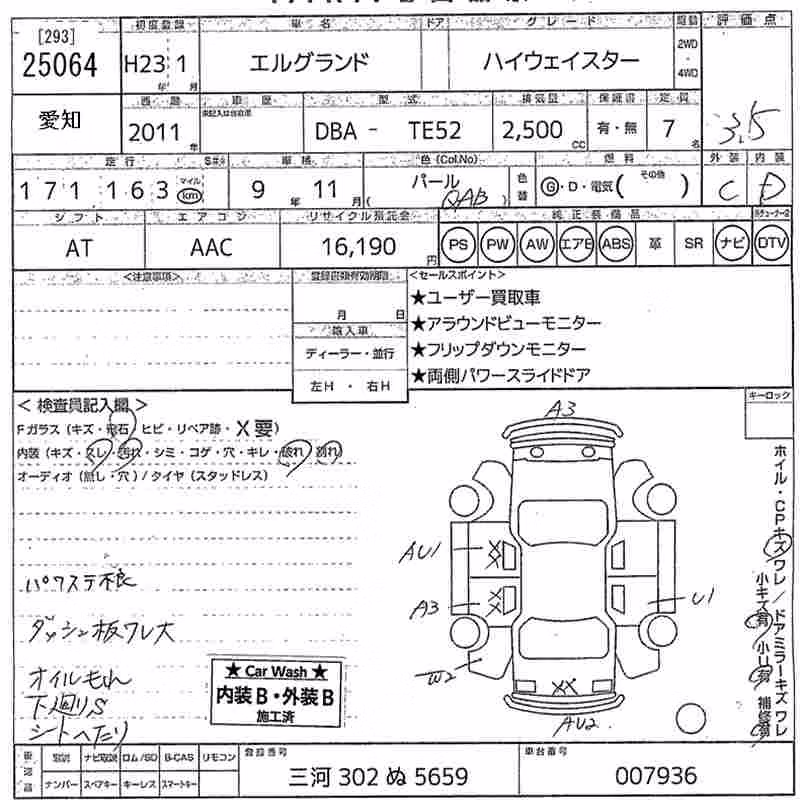 [293]
25064
初度登録 車名 ドア グレード 駆動 評価点
H23年 1月 エルグランド ハイウェイスター 2WD・4WD
愛知 西暦 車歴 型式 排気量 保証書 定員 3.5
2011年 未記入は自家用 DBA - TE52 2,500CC 有・無 7名 外装 内装
走行 車検 色(Col.No) 燃料 その他
171,163 マイル km 9年 11月 パール (QAB) 色替 G・D・電気( ) C D
シフト エアコン リサイクル預託金 純正装備品
AT AAC 16,190円 PS PW AW エアB ABS 革 SR ナビ DTV
<注意事項> 登録書類有効期限 <セールスポイント>
月 日 ★ユーザー買取車
輸入車 ★アラウンドビューモニター
ディーラー・並行 ★フリップダウンモニター
左H ・ 右H ★両側パワースライドドア
キーロック
< 検査員記入欄 >
Fガラス (キズ・飛石・ヒビ・リペア跡・X要)
内装 (キズ・スレ・汚れ・シミ・コゲ・穴・キレ・破れ・割れ)
オーディオ (無し・穴) / タイヤ (スタッドレス)
パワステ不良
ダッシュ板ワレ大
オイルもれ
下廻りS
シートへたり
★ Car Wash ★
内装B・外装B
施工済
A3
AU1 XX
A3 XX
U1
W2
XX
AU2
ホイル・CPキズワレ / ドアミラーキズワレ
小キズ有 小U有 補修有
取説 ナビ取説 ロム/SD B-CAS リモコン 登録番号 車台番号
ナンバー スペアキー キーレス スマートキー 三河 302 ぬ 5659 007936